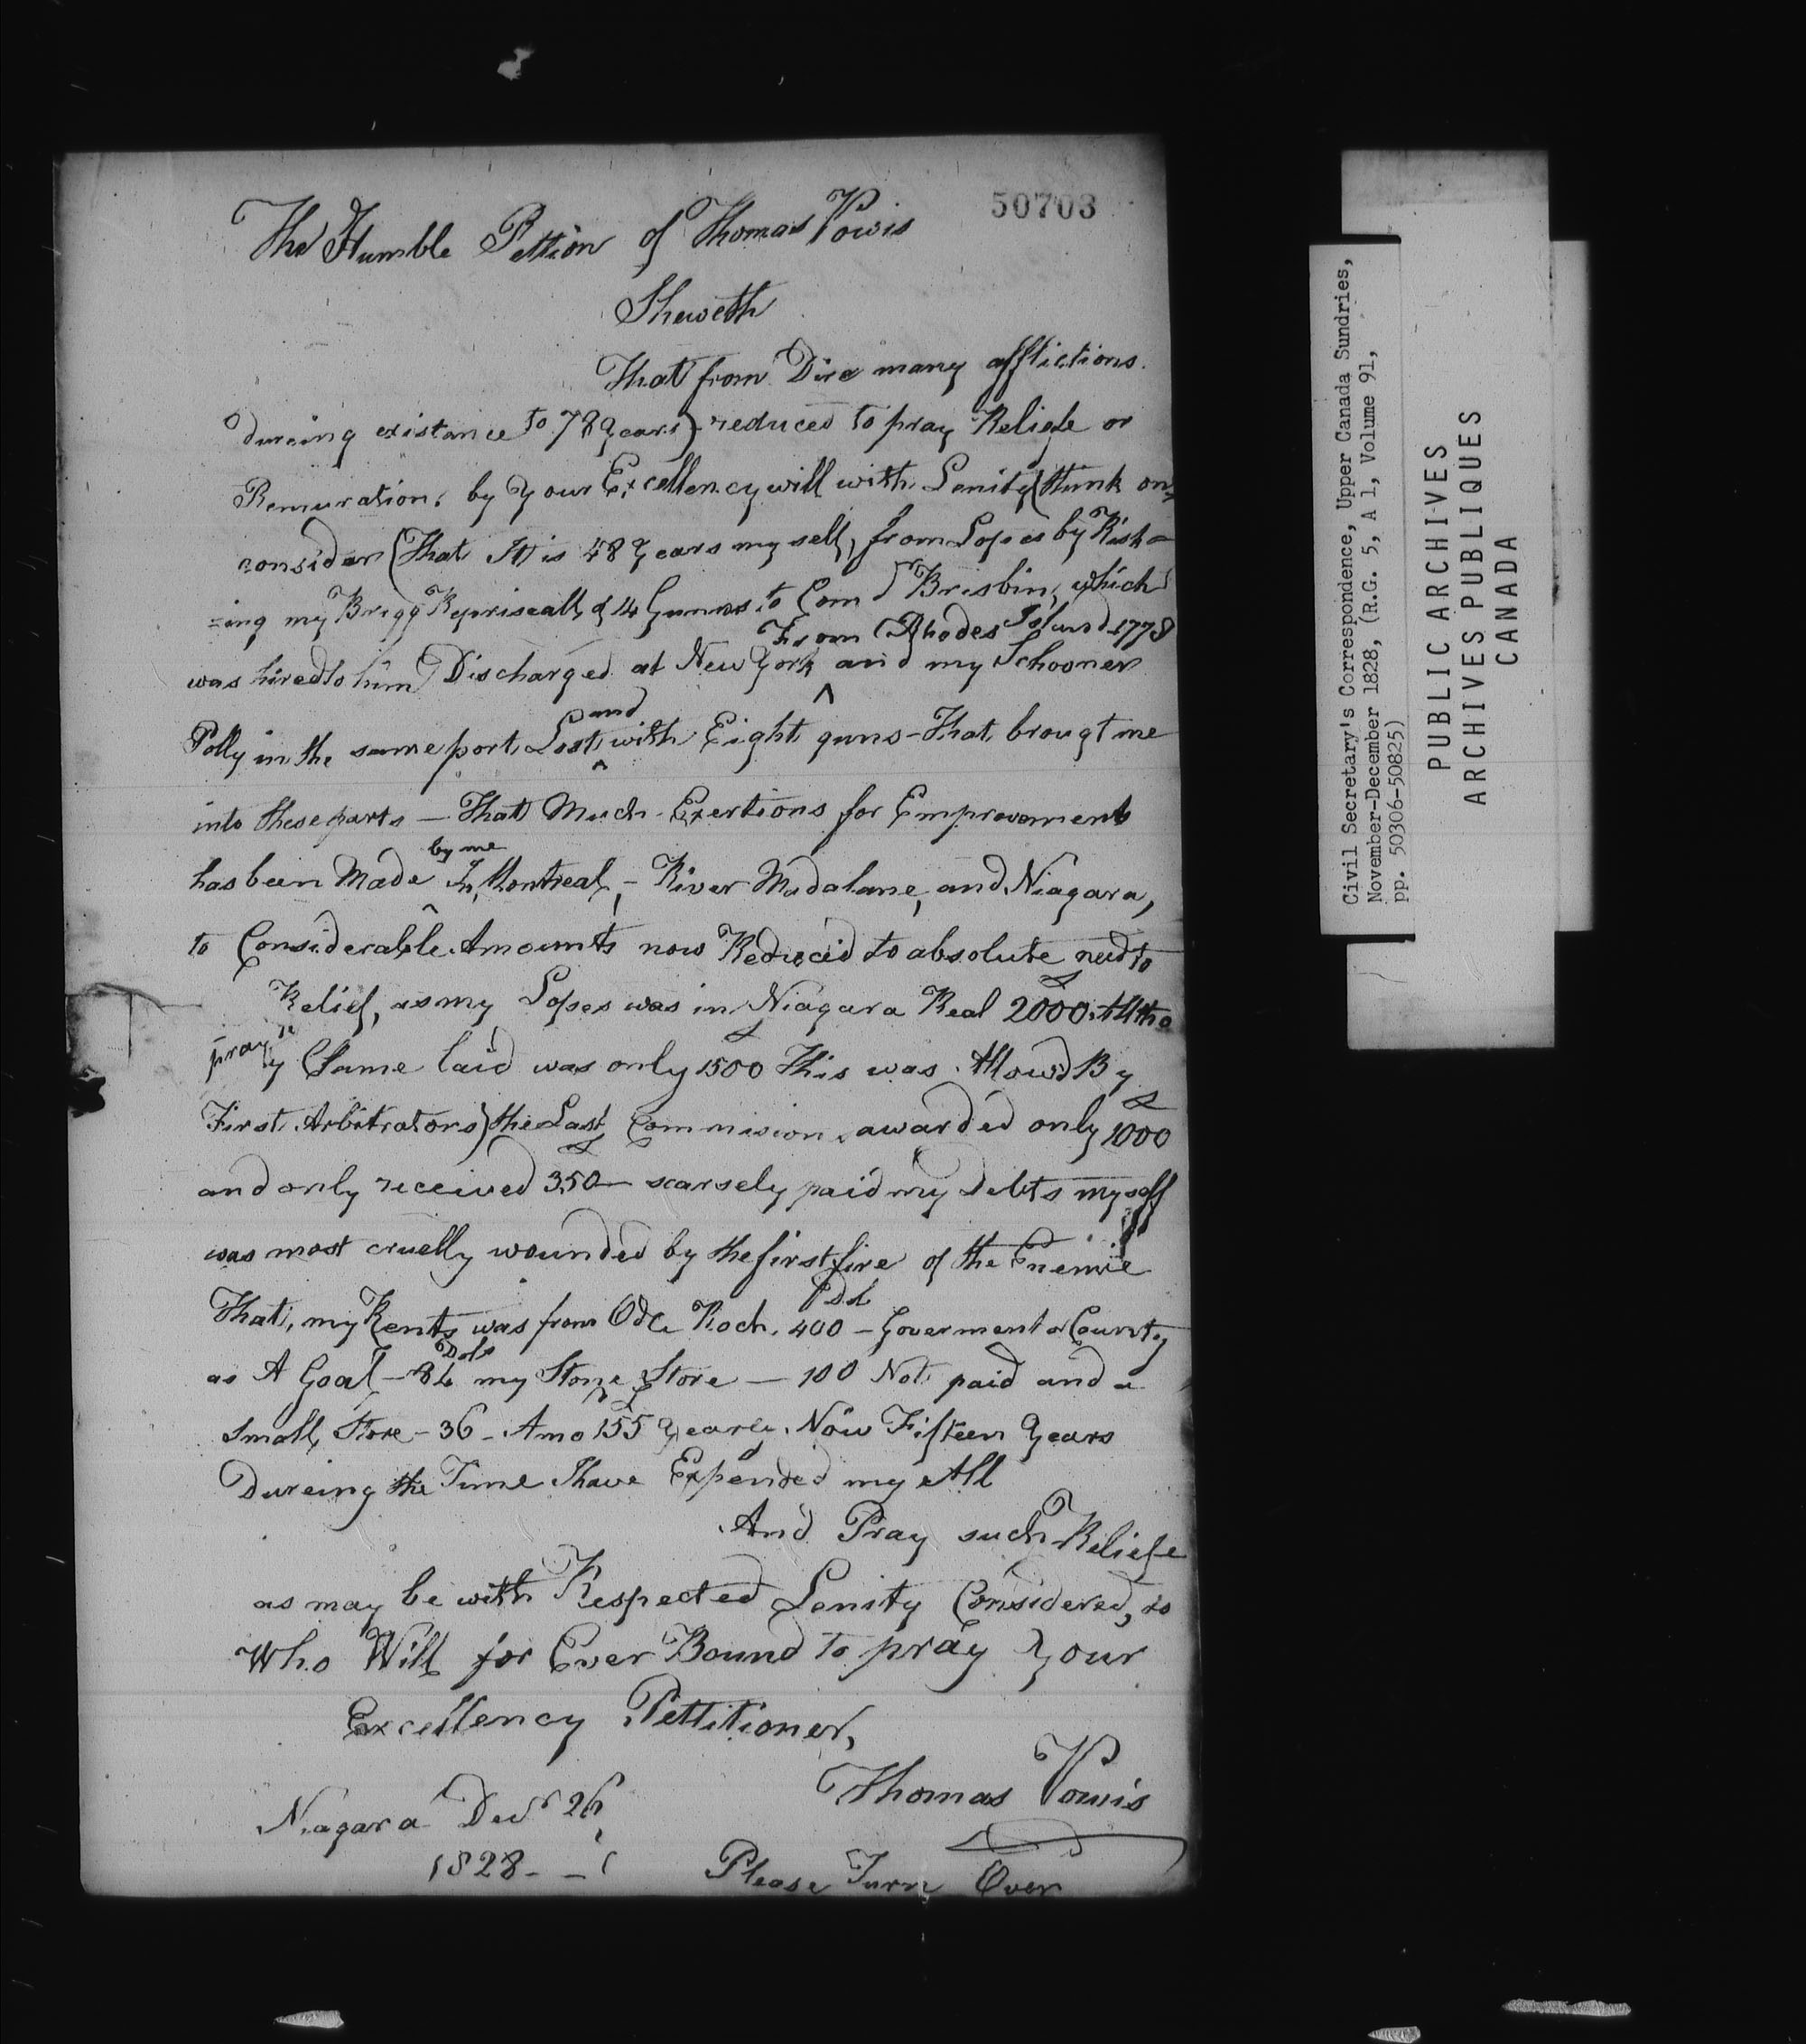 50703
The Humble Pettion of Thomas Powis
Sheweth
That from Dire many afflictions.
dureing existance to 78 Years) reduced to pray Reliefe or
Remuration, by Your Excellency will with Lenity (think on,
consider (That It is 48 Years my self, from Losses by Risk-
=ing my Brigg Repriseall, of 14 Gunns to Com Brisbin, which
was hired to him) Discharged at New York From Rhodes Island 1778 and my Schooner
Polly in the same port Lost and with Eight guns - That brougt me
into these parts - That Much Exertions for Emprovements
has been Made by me In Montreal, - River Madalane, and Niagara,
to Considerable Amounts now Reduced to absolute need to
pray Relief, as my Losses was in Niagara Real £ 2000. Altho
y Same laid was only £ 1500 This was Allow'd By
First Arbitrators) the Last Commision awarded only £ 1000
and only received £ 350 - scarsely paid my Debts myself
was most cruelly wounded by the first fire of the Enemie
That, my Rents was from 400 - Goverment or County
as A Goal - 84 Dols my Stone Store - 100 Not paid and a
small Store - 36 - Amo £ 155 Yearly. Now Fifteen Years
Dureing the Time I have Expended my All
And Pray such Reliefe
as may be with Respected Lenity Considered, to
Who Will for Ever Bound to pray Your
Excellency Pettitioner,
Thomas Powis
Niagara Decr 26
1828 - -
Please Turn Over
Civil Secretary's Correspondence, Upper Canada Sundries,
November-December 1828, (R.G. 5, A 1, Volume 91,
pp. 50306-50825)
PUBLIC ARCHIVES
ARCHIVES PUBLIQUES
CANADA